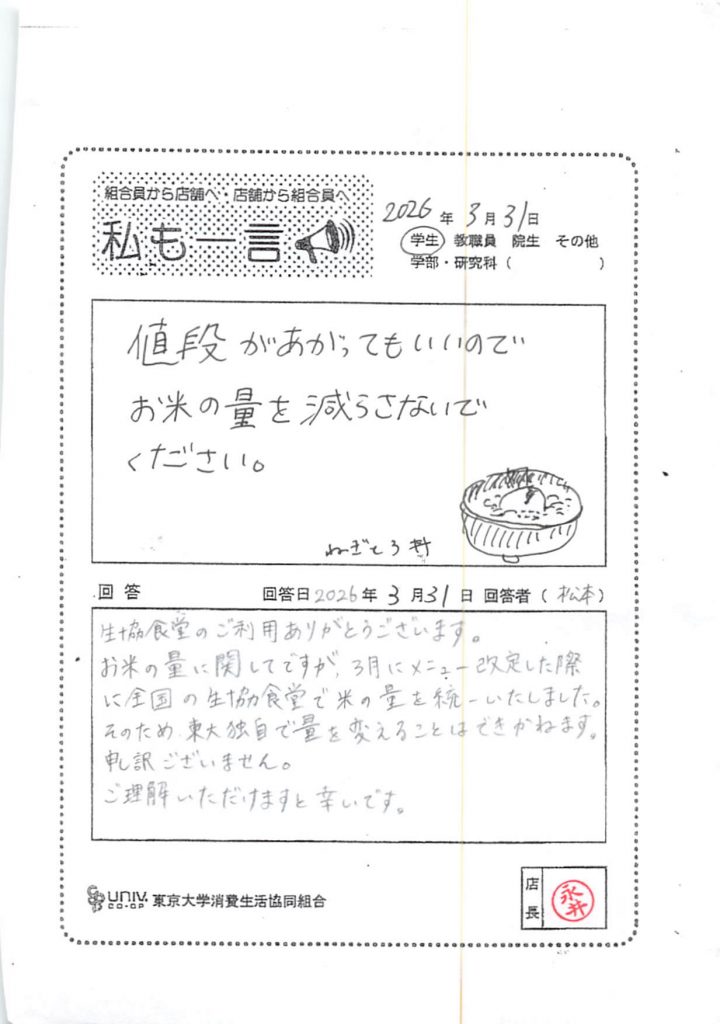 組合員から店舗へ・店舗から組合員へ
私も一言
2026年3月31日
学生 教職員 院生 その他
学部・研究科( )
値段があがってもいいので
お米の量を減らさないで
ください。
ねぎとろ丼
回答 回答日2026年3月31日 回答者(松本)
生協食堂のご利用ありがとうございます。
お米の量に関してですが、3月にメニュー改定した際
に全国の生協食堂で米の量を統一いたしました。
そのため、東大独自で量を変えることはできかねます。
申し訳ございません。
ご理解いただけますと幸いです。
UNIV. CO-OP 東京大学消費生活協同組合
店長 永井